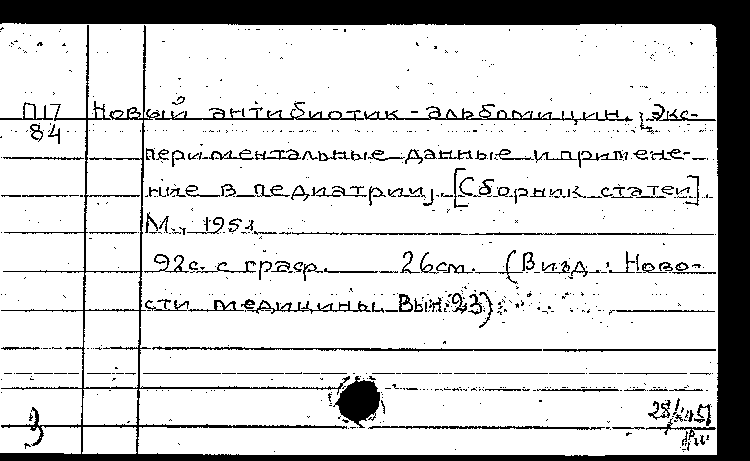 П17 Новый антибиотик-альбомицин. [Экс-
84
периментальные данные и примене-
ние в педиатрии]. [Сборник статей].
М., 1951.
92с. с граф. 26см. (В изд.: Ново-
сти медицины. Вып. 23)